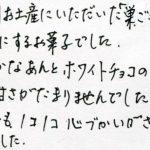 お土産にいただいた「菓ご
にするお菓子でした.
なあんとホワイトチョコの
甘さがたまりませんでした
も 心づかいが
した.